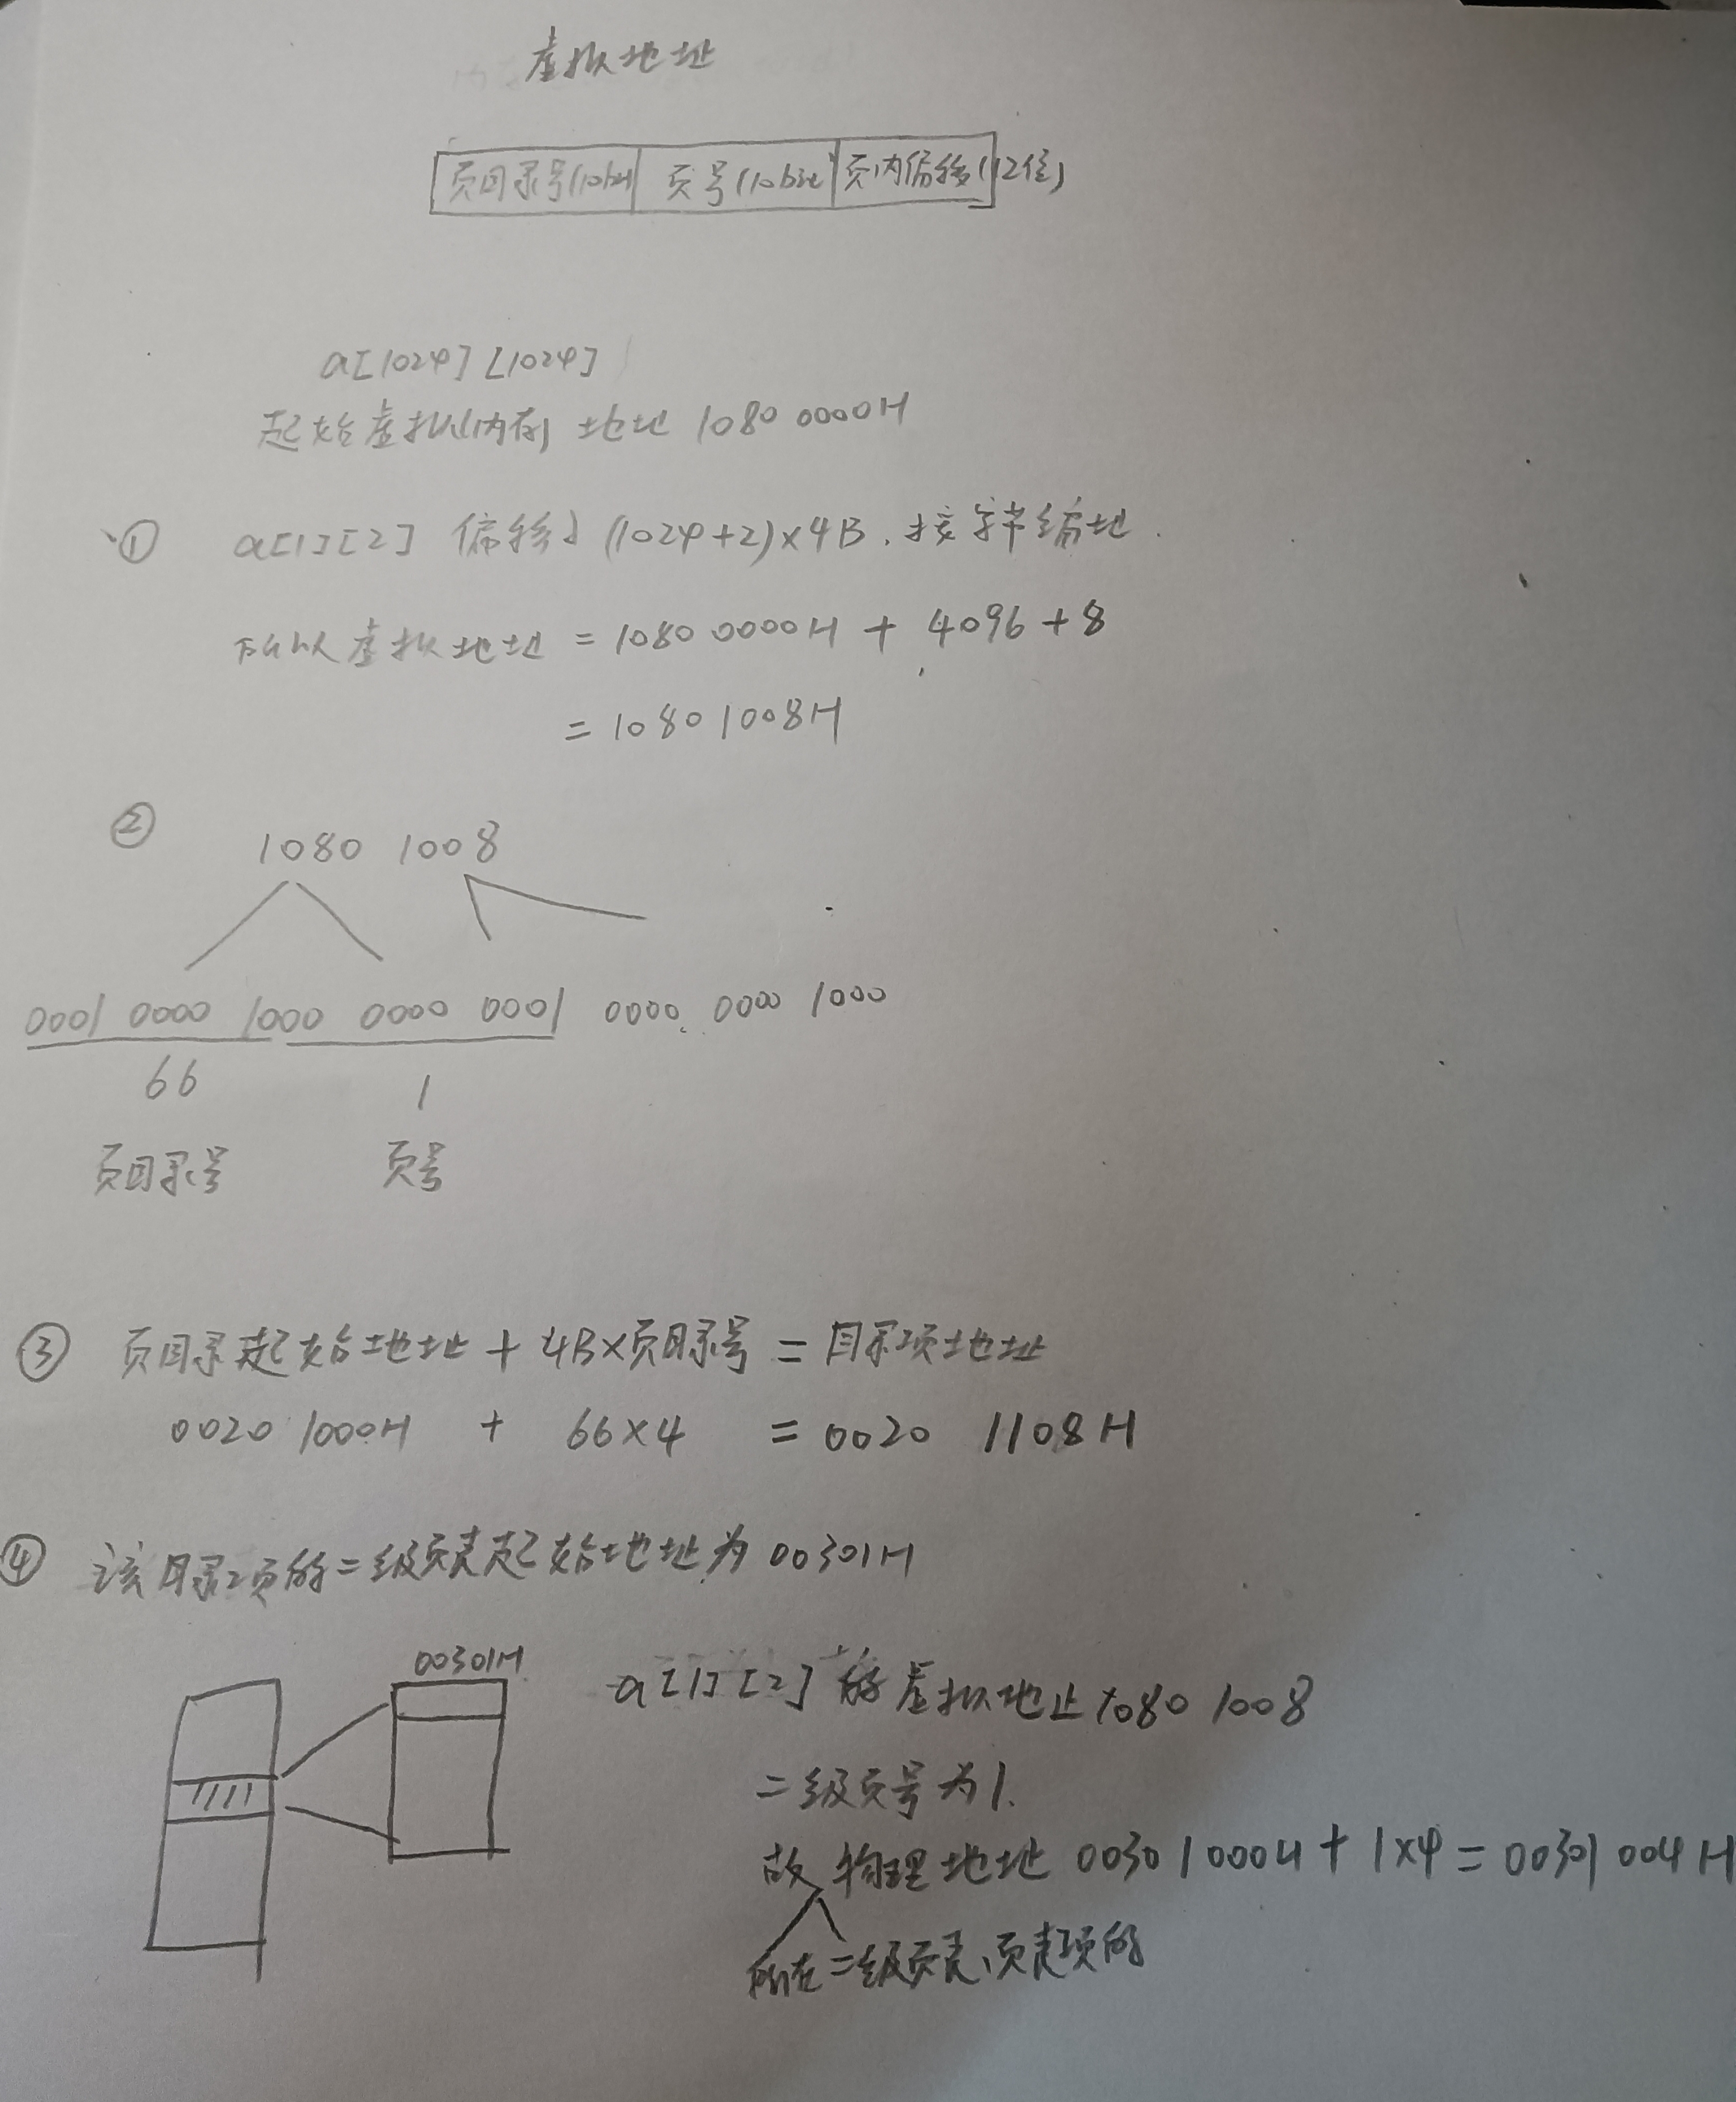 虚拟地址
页目录号(10bit) 页号(10bit 页内偏移(12位)
a[1024][1024]
起始虚拟内存地址 1080 0000H
① a[1][2] 偏移了 (1024+2)×4B. 按字节编址.
所以虚拟地址 = 1080 0000H + 4096 + 8
= 1080 1008H
② 1080 1008
0001 0000 1000 0000 0001 0000 0000 1000
66 1
页目录号 页号
③ 页目录起始地址 + 4B×页目录号 = 目录项地址
0020 1000H + 66×4 = 0020 1108H
④ 该目录项的二级页表起始地址为 00301H
00301H
a[1][2] 的虚拟地址 1080 1008
二级页号为1.
故物理地址 0030 1000H + 1×4 = 00301 004H
所在二级页表、页表项的